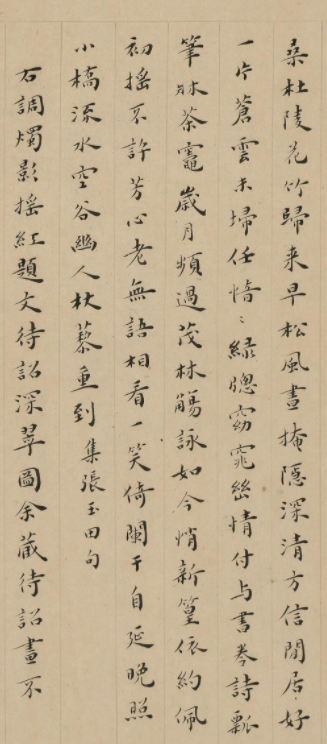 桑杜陵花竹歸来早松風晝掩隱深清方信閒居好
一片蒼雲未埽任愔〻綠窗窈窕幽情付与書卷詩瓢
筆牀茶竈歲月頻過茂林觴詠如今悄新篁依約佩
初搖不許芳心老無語相看一笑倚闌干自延晚照
小橋流水空谷幽人杖藜重到 集張玉田句
右調燭影搖紅題文待詔深翠圖余藏待詔畫不